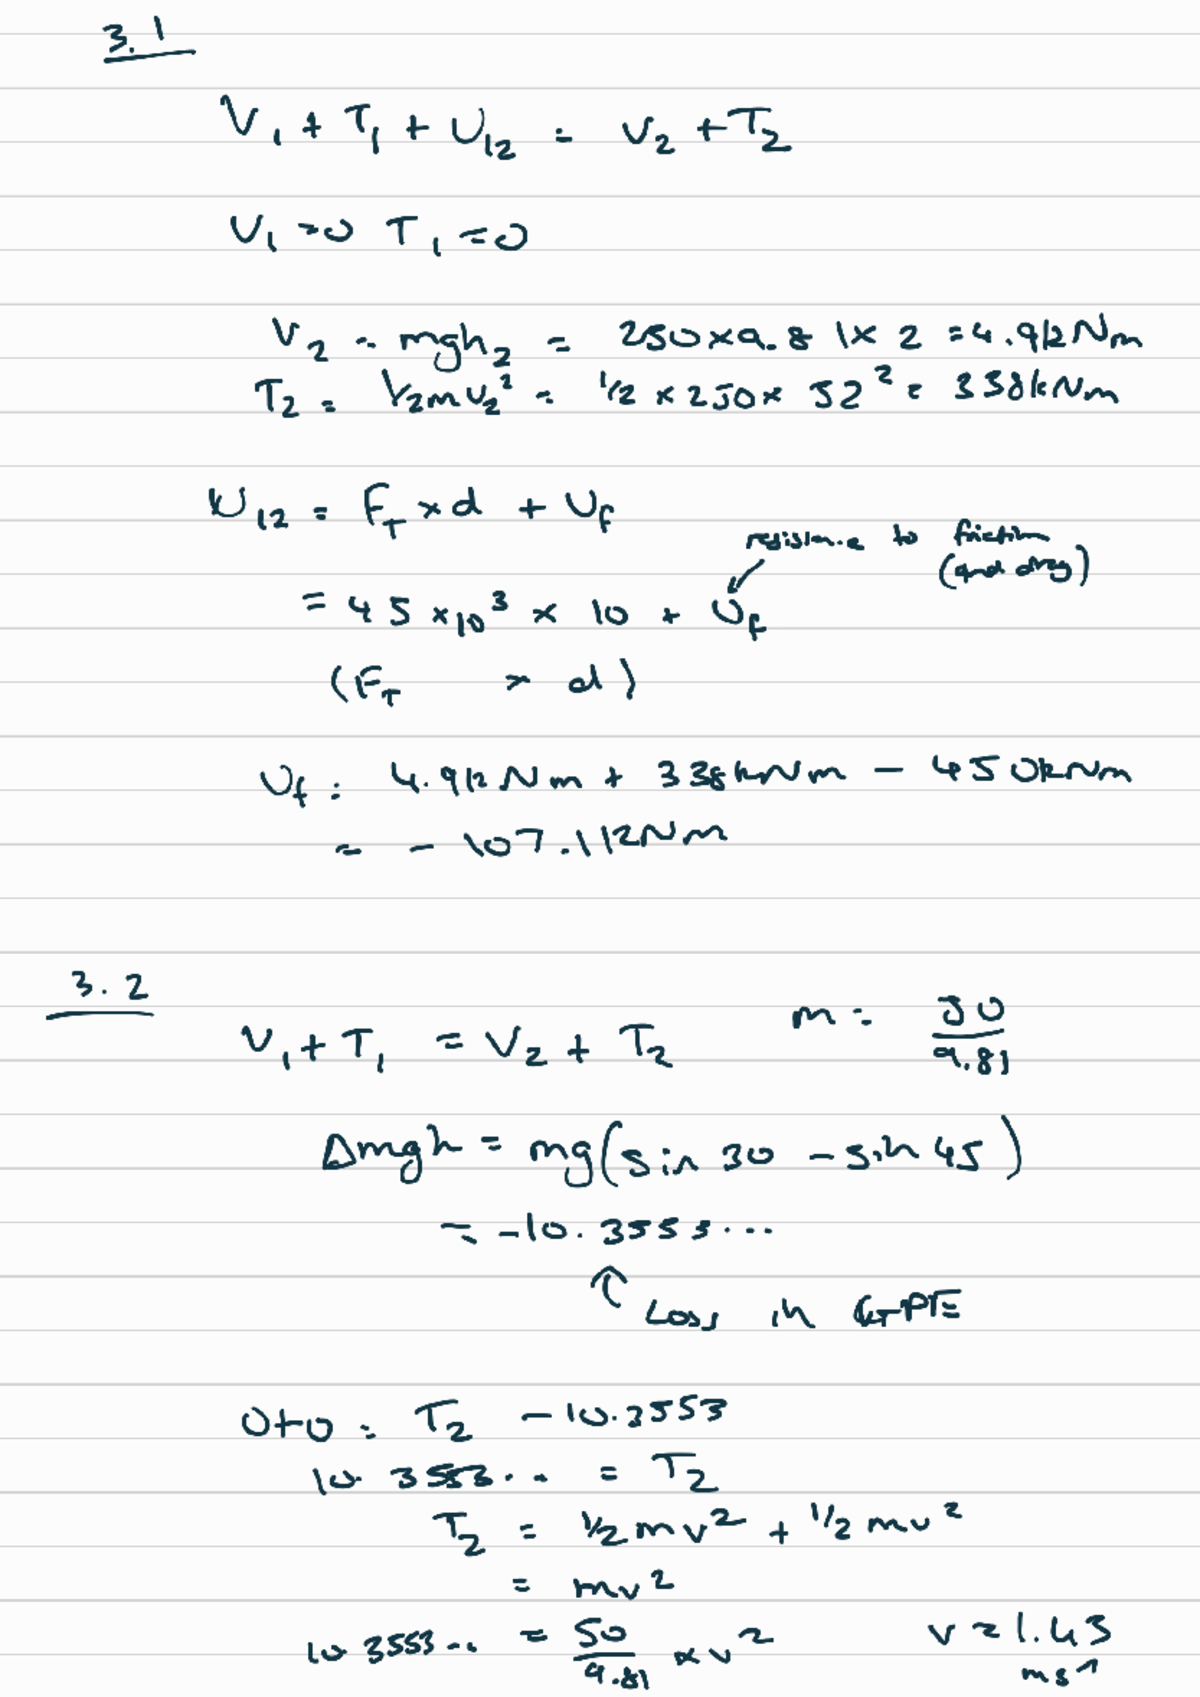 3.1
V₁ + T₁ + U₁₂ = V₂ + T₂
V₁ = 0 T₁ = 0
V₂ = mgh₂ = 250 × 9.81 × 2 = 4.9kNm
T₂ = ½mv₂² = ½ × 250 × 52² = 338kNm
U₁₂ = F_T × d + U_f
resistance to friction
(and drag)
= 45 × 10³ × 10 + U_f
(F_T × d)
U_f = 4.9kNm + 338kNm − 450kNm
= − 107.1kNm
3.2
V₁ + T₁ = V₂ + T₂ m = 50/9.81
Δmgh = mg(sin 30 − sin 45)
= −10.3553...
↑ Loss in GPE
0+0 = T₂ − 10.3553
10.3553.. = T₂
T₂ = ½mv² + ½mv²
= mv²
10.3553.. = 50/9.81 × v² v = 1.43
ms⁻¹